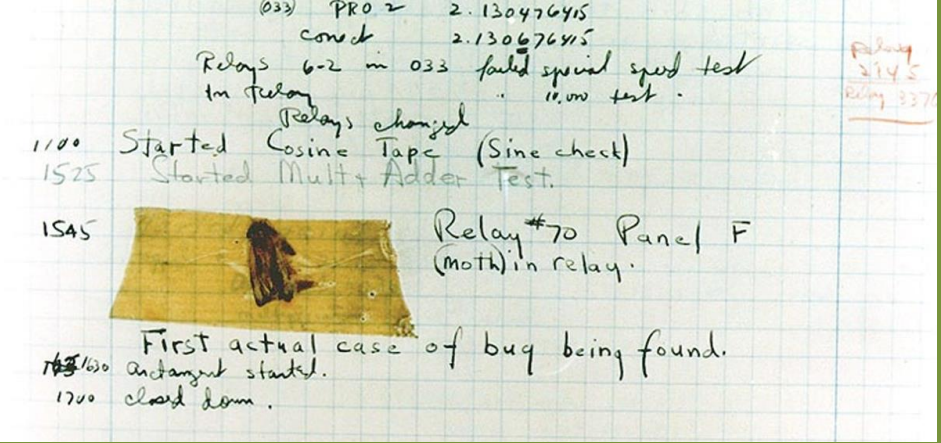 (033) PRO 2 2.130476415
conect 2.130676415
Relays 6-2 in 033 failed special speed test
In Relay " 10,000 test .
Relays changed
1100 Started Cosine Tape (Sine check)
1525 Started Mult + Adder Test.
1545 Relay #70 Panel F
(moth) in relay.
First actual case of bug being found.
1630 arctangent started.
1700 closed down.
Relay
2145
Relay 3370